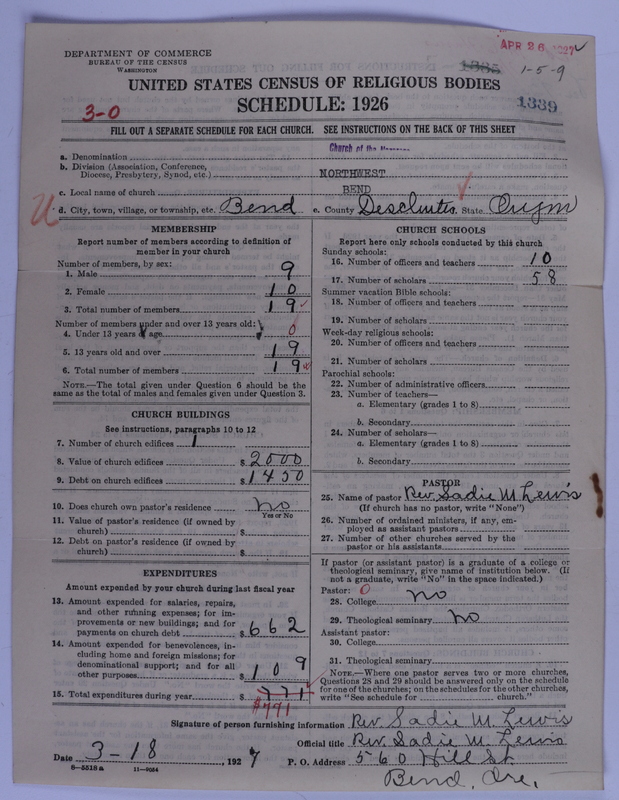 DEPARTMENT OF COMMERCE
BUREAU OF THE CENSUS
WASHINGTON
APR 26 1927
1335
1-5-9
UNITED STATES CENSUS OF RELIGIOUS BODIES
SCHEDULE: 1926
3-0
1339
FILL OUT A SEPARATE SCHEDULE FOR EACH CHURCH. SEE INSTRUCTIONS ON THE BACK OF THIS SHEET
a. Denomination Church of the
b. Division (Association, Conference,
Diocese, Presbytery, Synod, etc.) NORTHWEST
c. Local name of church BEND
d. City, town, village, or township, etc. Bend e. County Deschutes State Oregon
MEMBERSHIP
Report number of members according to definition of
member in your church
Number of members, by sex:
1. Male 9
2. Female 10
3. Total number of members 19
Number of members under and over 13 years old:
4. Under 13 years of age 0
5. 13 years old and over 19
6. Total number of members 19
NOTE.—The total given under Question 6 should be the
same as the total of males and females given under Question 3.
CHURCH BUILDINGS
See instructions, paragraphs 10 to 12
7. Number of church edifices 1
8. Value of church edifices $ 2000
9. Debt on church edifices $ 1450
10. Does church own pastor's residence no
Yes or No
11. Value of pastor's residence (if owned by
church) $
12. Debt on pastor's residence (if owned by
church) $
EXPENDITURES
Amount expended by your church during last fiscal year
13. Amount expended for salaries, repairs,
and other running expenses; for im-
provements or new buildings; and for
payments on church debt $ 662
14. Amount expended for benevolences, in-
cluding home and foreign missions; for
denominational support; and for all
other purposes $ 109
15. Total expenditures during year $ 771
$771
CHURCH SCHOOLS
Report here only schools conducted by this church
Sunday schools:
16. Number of officers and teachers 10
17. Number of scholars 58
Summer vacation Bible schools:
18. Number of officers and teachers
19. Number of scholars
Week-day religious schools:
20. Number of officers and teachers
21. Number of scholars
Parochial schools:
22. Number of administrative officers
23. Number of teachers—
a. Elementary (grades 1 to 8)
b. Secondary
24. Number of scholars—
a. Elementary (grades 1 to 8)
b. Secondary
PASTOR
25. Name of pastor Rev. Sadie M. Lewis
(If church has no pastor, write "None")
26. Number of ordained ministers, if any, em-
ployed as assistant pastors
27. Number of other churches served by the
pastor or his assistants
If pastor (or assistant pastor) is a graduate of a college or
theological seminary, give name of institution below. (If
not a graduate, write "No" in the space indicated.)
Pastor: 0
28. College no
29. Theological seminary no
Assistant pastor:
30. College
31. Theological seminary
NOTE.—Where one pastor serves two or more churches,
Questions 28 and 29 should be answered only on the schedule
for one of the churches; on the schedules for the other churches,
write "See schedule for church."
Signature of person furnishing information Rev. Sadie M. Lewis
Official title Rev. Sadie M. Lewis
Date 3-18, 1927 P. O. Address 560 Hill St
8-5518a 11-9054
Bend, Ore.